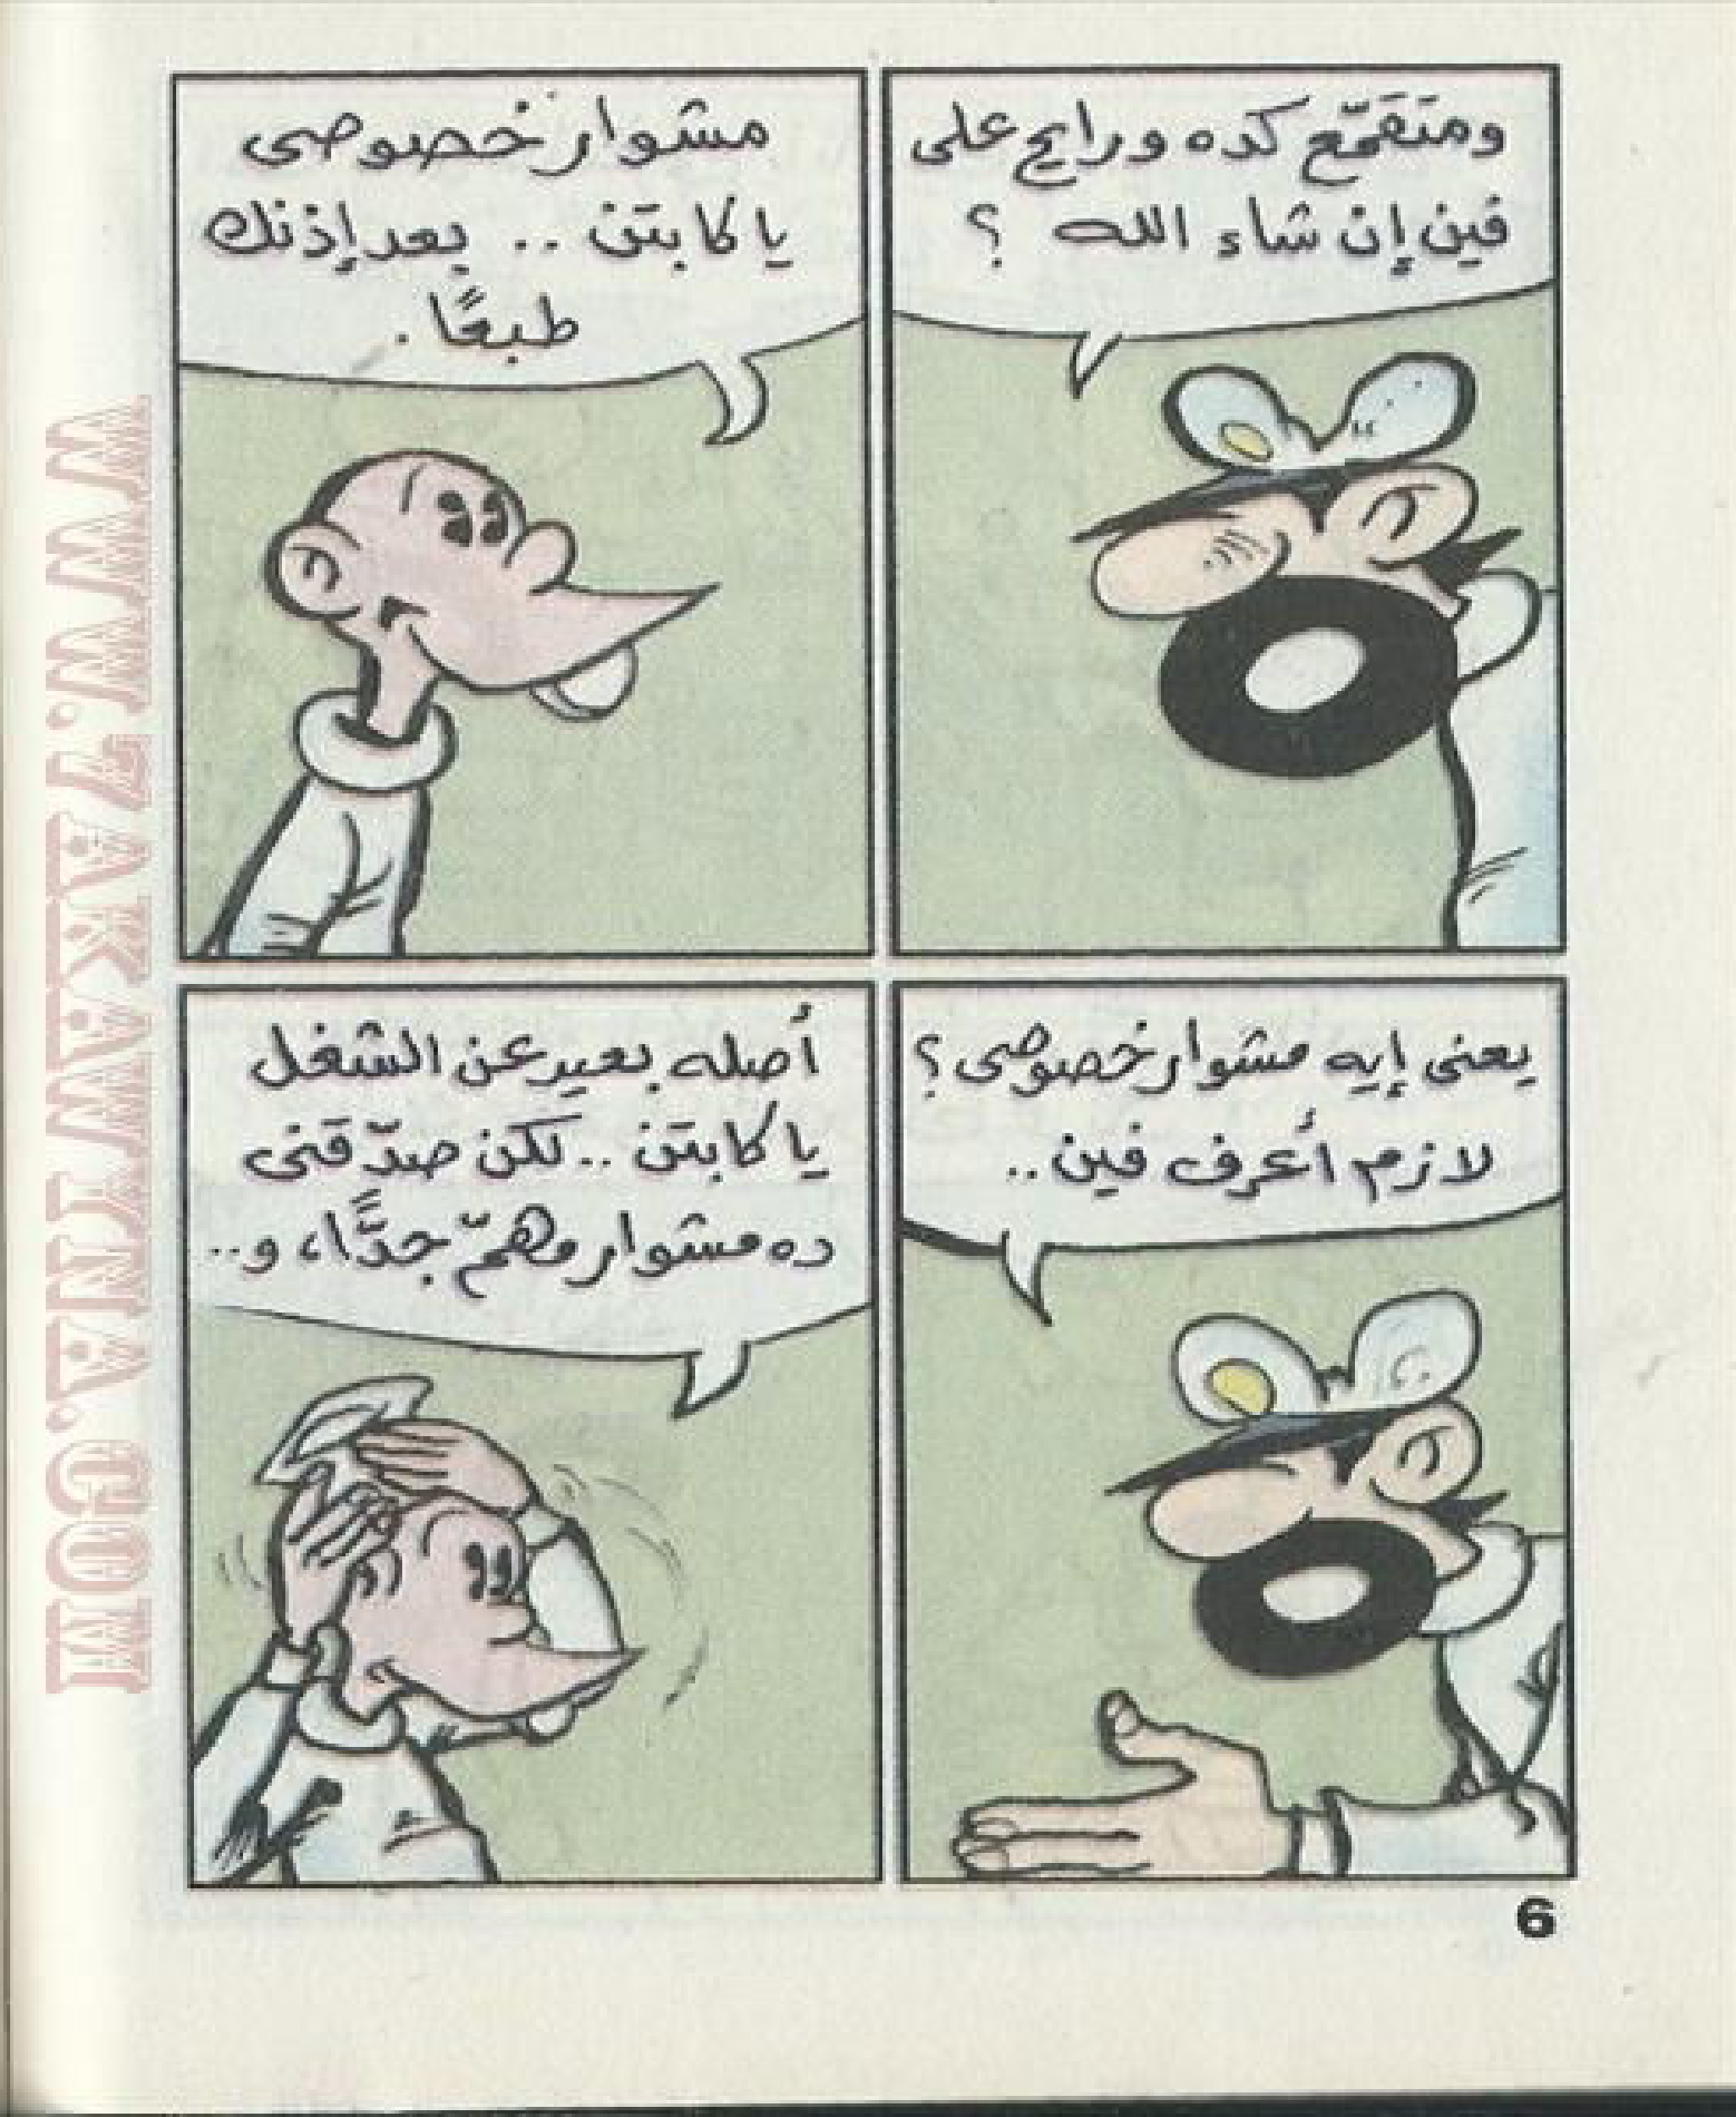 ومتَقَمّع كده ورايح على
فين إن شاء الله ؟
مشوار خصوصى
يا كابتن .. بعد إذنك
طبعًا .
يعنى إيه مشوار خصوصى ؟
لازم أعرف فين ..
أصله بعيد عن الشغل
يا كابتن .. لكن صدّقنى
ده مشوار مهمّ جدًّا، و..
6
WWW.TAKAWTINA.COM